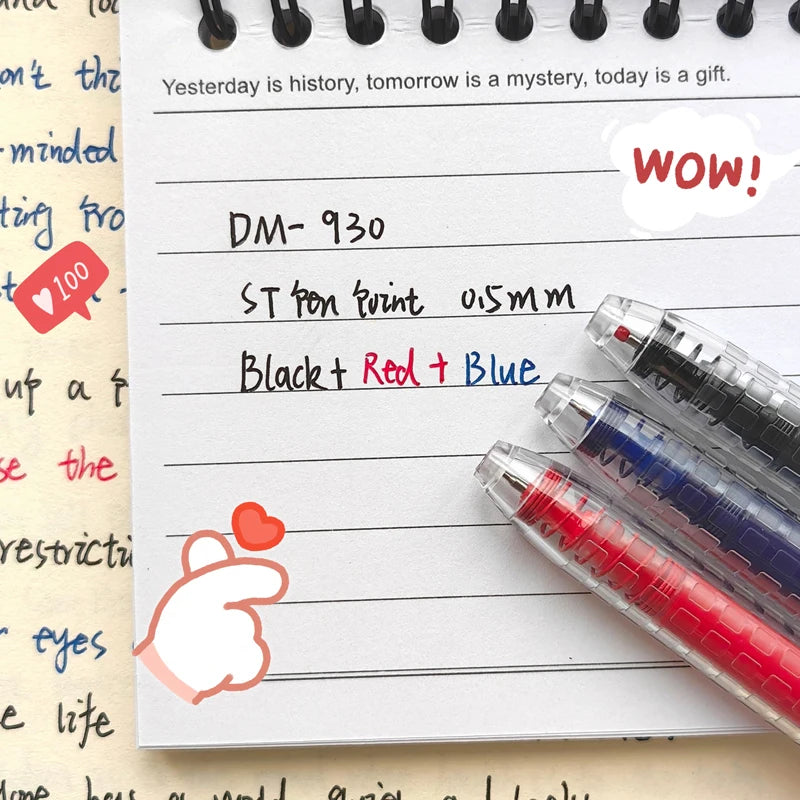 Yesterday is history, tomorrow is a mystery, today is a gift.
WOW!
DM-930
ST Pen Point 0.5mm
Black + Red + Blue
100
on't
-minded
ting
up a
se the
restricti
eyes
e life